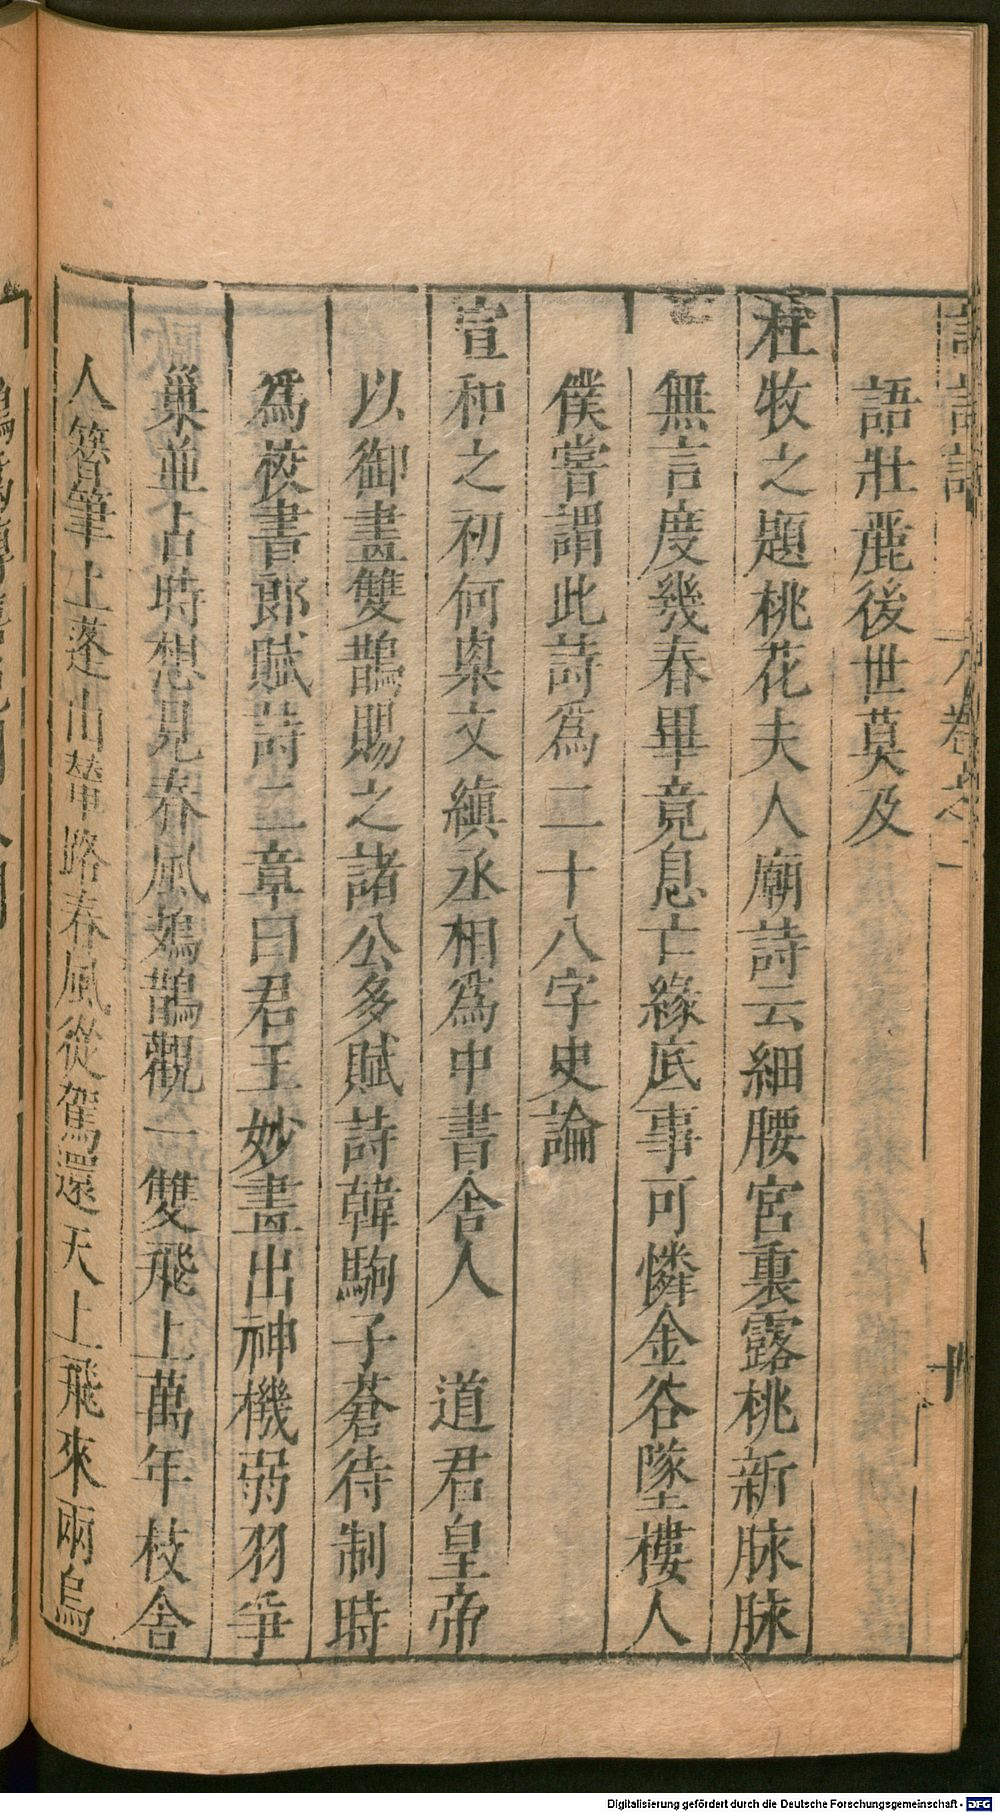 語壯麗後世莫及
杜牧之題桃花夫人廟詩云細腰宮裏露桃新脉脉
無言度幾春畢竟息亡緣底事可憐金谷墜樓人
僕嘗謂此詩爲二十八字史論
宣和之初何㮚文縝丞相爲中書舍人　道君皇帝
以御畫雙鵲賜之諸公多賦詩韓駒子蒼待制時
爲校書郎賦詩二章曰君王妙畫出神機弱羽爭
巢並占時想見春風鳷鵲觀一雙飛上萬年枝舍
人簪筆上蓬山輦路春風從駕還天上飛來兩烏
Digitalisierung gefördert durch die Deutsche Forschungsgemeinschaft - DFG